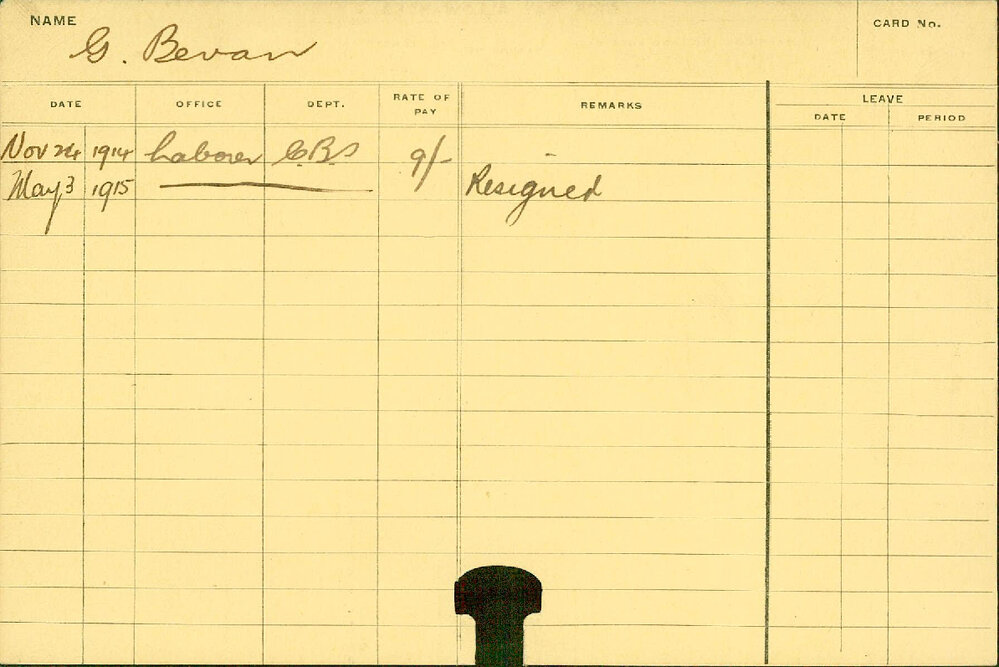 NAME G. Bevan CARD No.
DATE OFFICE DEPT. RATE OF PAY REMARKS LEAVE
DATE PERIOD
Nov 24 1914 Laborer C.B.S 9/-
May 3 1915 Resigned